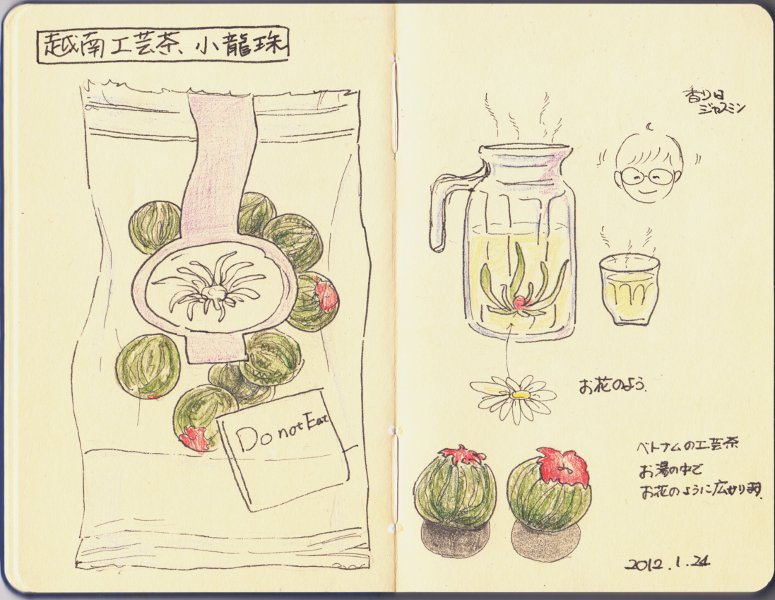 越南工芸茶、小龍珠
Do not Eat
香りは
ジャスミン
お花のよう.
ベトナムの工芸茶
お湯の中で
お花のように広がります.
2012.1.24